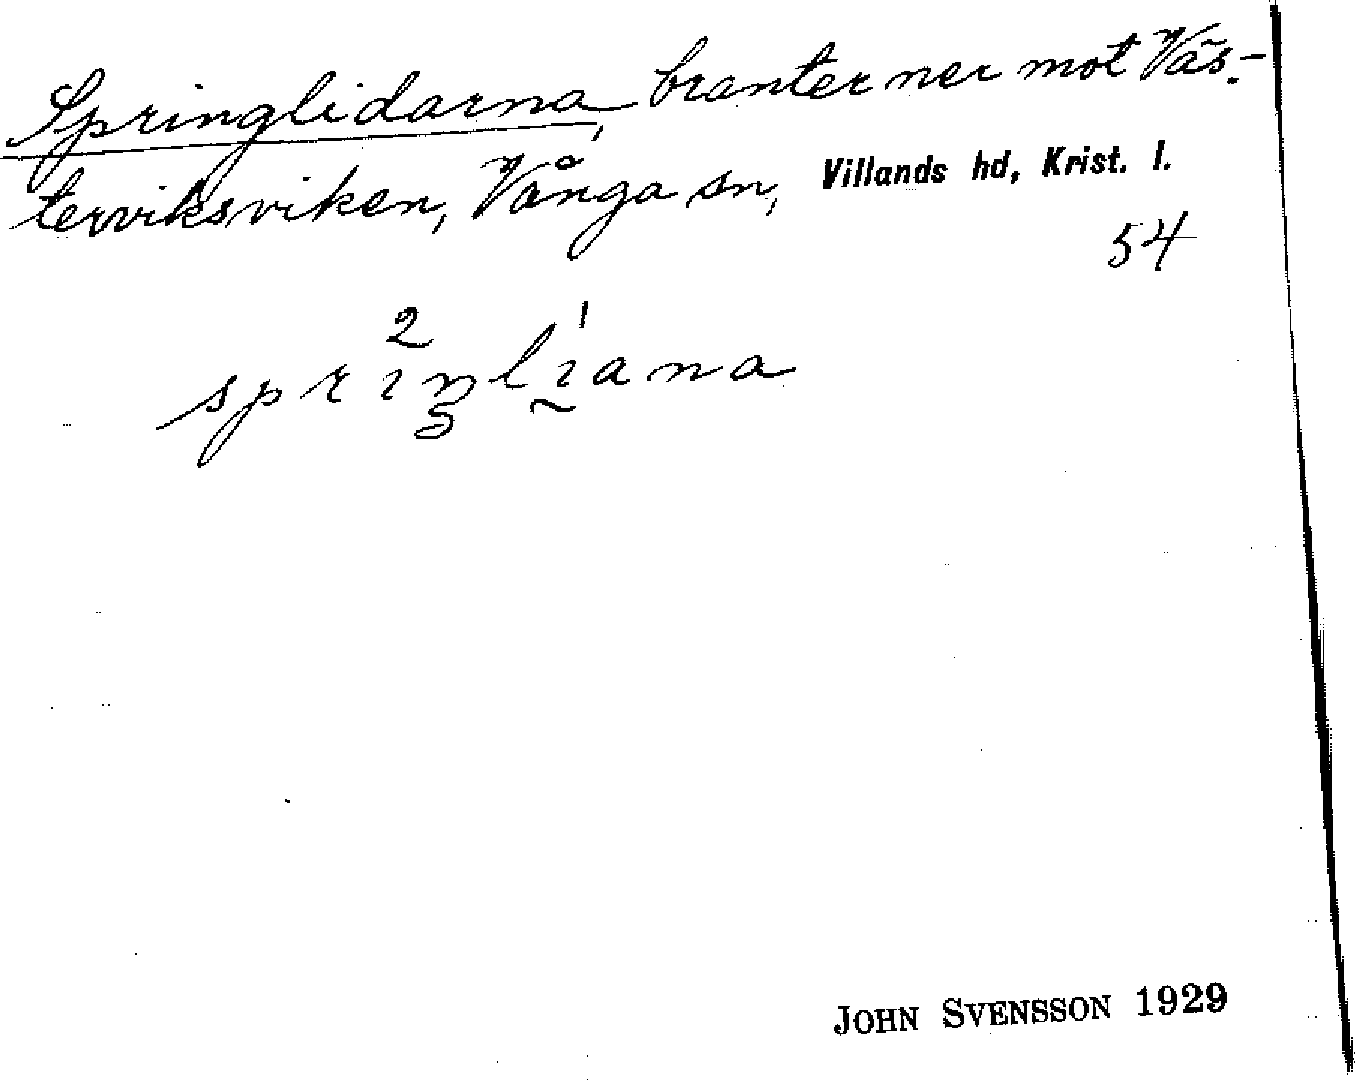 Springlidarna, branter ner mot Väs-
terviksviken, Vånga sn, Villands hd, Krist. l.
54
spriŋliana
2 1
JOHN SVENSSON 1929